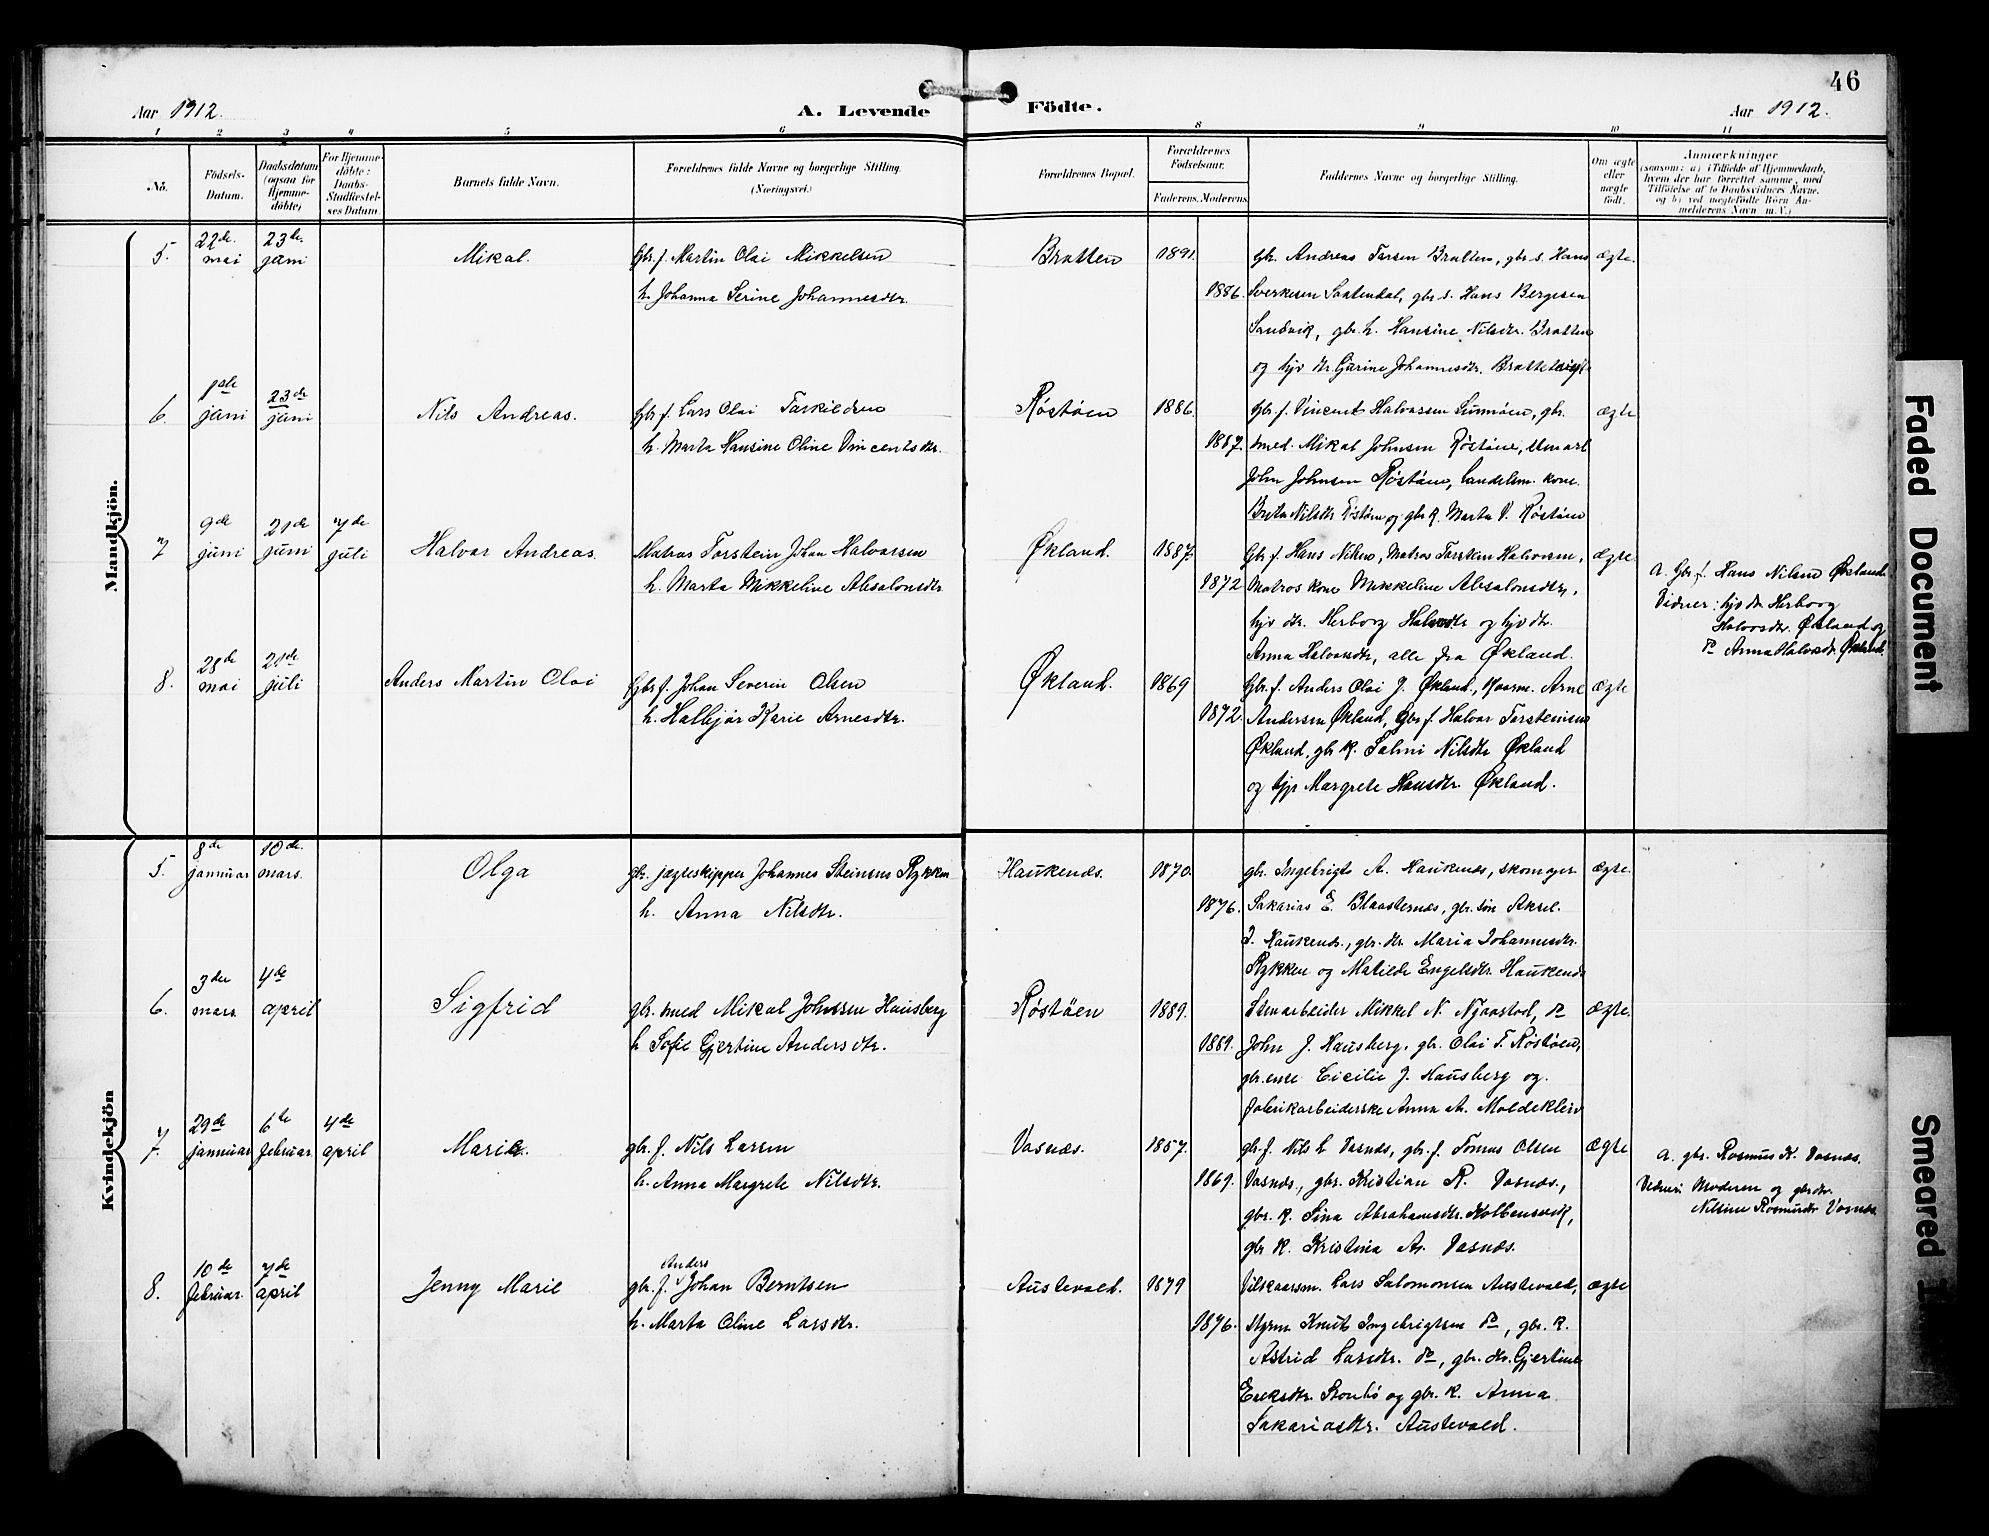 46
Aar 1912. A. Levende Födte. Aar 1912.
1 2 3 4 5 6 8 9 10 11
No. Födsels-Datum. Daabsdatum (ogsaa for Hjemme-döbte) For Hjemme-döbte: Daabs-Stadfæstelses Datum Barnets fulde Navn. Forældrenes fulde Navne og borgerlige Stilling. (Næringsvei.) Forældrenes Bopæl. Forældrenes Födselsaar. Faderens. Moderens. Faddernes Navne og borgerlige Stilling. Om ægte eller uægte født. Anmærkninger (saasom: a) i Tilfælde af Hjemmedaab, hvem der har forrettet samme, med Tilföielse af to Daabsvidners Navne, og b) ved uægtefödte Börn Anmelderens Navn m. V.)
Mandkjön.
5. 22de mai 23de juni Mikal. Gbr.f. Martin Olai Mikkelsen Bratten 1891. gbr. Andreas Larsen Bratten, gbr s. Hans ægte.
h. Johanna Serine Johannesdtr. 1886. Sverkesen Saatendal, gbr s. Hans Bergesen
Sandvik, gbr. h. Hansine Nilsdtr. Bratten
og hjv dtr. Gjærine Johannesdtr.
6. 1ste juni 23de juni Nils Andreas. Gbr f. Lars Olai Taskildsen Røstøen 1886. Gbr f. Vincent Halvorsen, gbr. ægte
h. Marta Hansine Oline Vincentsdtr. 1887. med. Mikal Johnsen Røstøen, stenarb
John Johnsen Røstøen, landelsm. kone
Brita Nilsdtr Røstøen og gbr k. Marta V. Røstøen
7 9de juni 21de juni 7de juli Halvar Andreas. Matros Torstein Johan Halvorsen Økland. 1887. Gbr f. Hans Nilsen, Matros Torstein Halvorsen, ægte a. Gbr. f. Hans Nilsen Økland.
h. Marta Mikkeline Absalonsdtr 1872 Matros kone Mikkeline Absalonsdtr, Vidner: hjv dtr Herborg
hjv dtr. Herborg Halvorsdtr og hjv dtr. Halvorsdtr. Økland og
Anna Halvorsdtr, alle fra Økland. do Anna Halvorsdtr Økland.
8. 28de mai 21de juli Anders Martin Olai Gbr f. Johan Severin Olsen Økland. 1869 Gbr f. Anders Olai J. Økland, Arne ægte
h. Hallgjør Karie Arnesdtr. 1872. Andersen Økland, Gbr f. Halvar Torsteinsen
Økland, gbr k. Salmi Nilsdtr Økland
og Margrete Hansdtr. Økland.
Kvindekjön
5. 8de januar 10de mars. Olga gbr. jægteskipper Johannes Steinsen Rykken Haukenæs. 1870. gbr. Ingebrigt A. Haukenæs, skomager ægte.
h. Anna Nilsdtr. 1876. Sakarias E. Blaasternæs, gbr. søn Aksel
J. Haukenæs, gbr. dtr. Maria Johannesdtr.
Rykken og Matilde Engelsdtr. Haukenæs
6. 3die mars 4de april Sigfrid gbr. med Mikal Johnsen Hausberg Røstøen 1889. Stenarbeider Mikkel N. Njaastad, do ægte.
h Sofie Gjertine Andersdtr. 1889. John J. Hausberg, gbr. Olai T. Røstøen,
gbr. enke Cicilie J. Hausberg og
fabrikarbeiderske Anna A. Moldekleiv
7. 29de januar 6te februar 4de april Marie. gbr. f. Nils Larsen Vasnæs. 1857. gbr. f. Nils L Vasnæs, gbr. f. Tomas Olsen ægte a. gbr. Rasmus K. Vasnæs.
h. Anna Margrete Nilsdtr. 1869. Vasnæs, gbr. Kristian R. Vasnæs, Vidner: Moderen og gbr dtr.
gbr. k. Sina Abrahamsdtr. Kolbensvik, Nilsine Rasmusdtr Vasnæs
gbr k. Kristina A. Vasnæs.
8. 10de februar 7de april Jenny Marie gbr. f. Anders Johan Berntsen Austevold. 1879 Vilkaarsm. Lars Salomonsen Austevold, ægte
h. Marta Oline Larsdtr. 1876. styrm Knut Ingebrigtsen do, gbr. k.
Astrid Larsdtr. do, gbr. dtr. Gjertine
Eriksdtr. Storebø og gbr. k. Anna
Sakariasdtr. Austevold.
Faded Document
Smeared